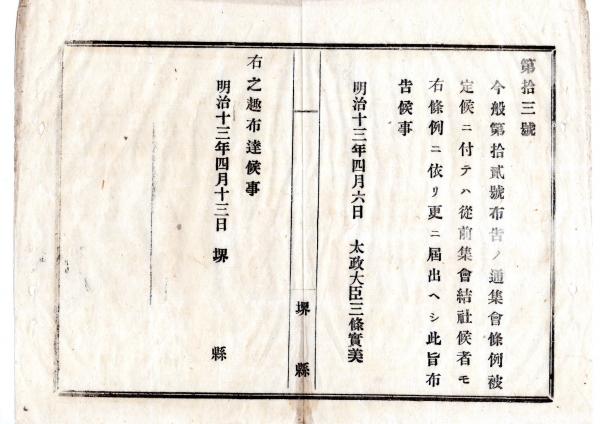 第拾三號
今般第拾貳號布告ノ通集會條例被
定候ニ付テハ從前集會結社候者モ
右條例ニ依リ更ニ屆出ヘシ此旨布
告候事
明治十三年四月六日　太政大臣三條實美
堺　縣
右之趣布達候事
明治十三年四月十三日　堺　縣